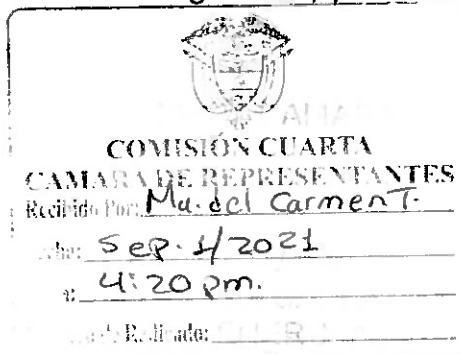 COMISIÓN CUARTA
CAMARA DE REPRESENTANTES
Recibido Por: Ma. del Carmen T.
Sep. 1/2021
4:20 pm.